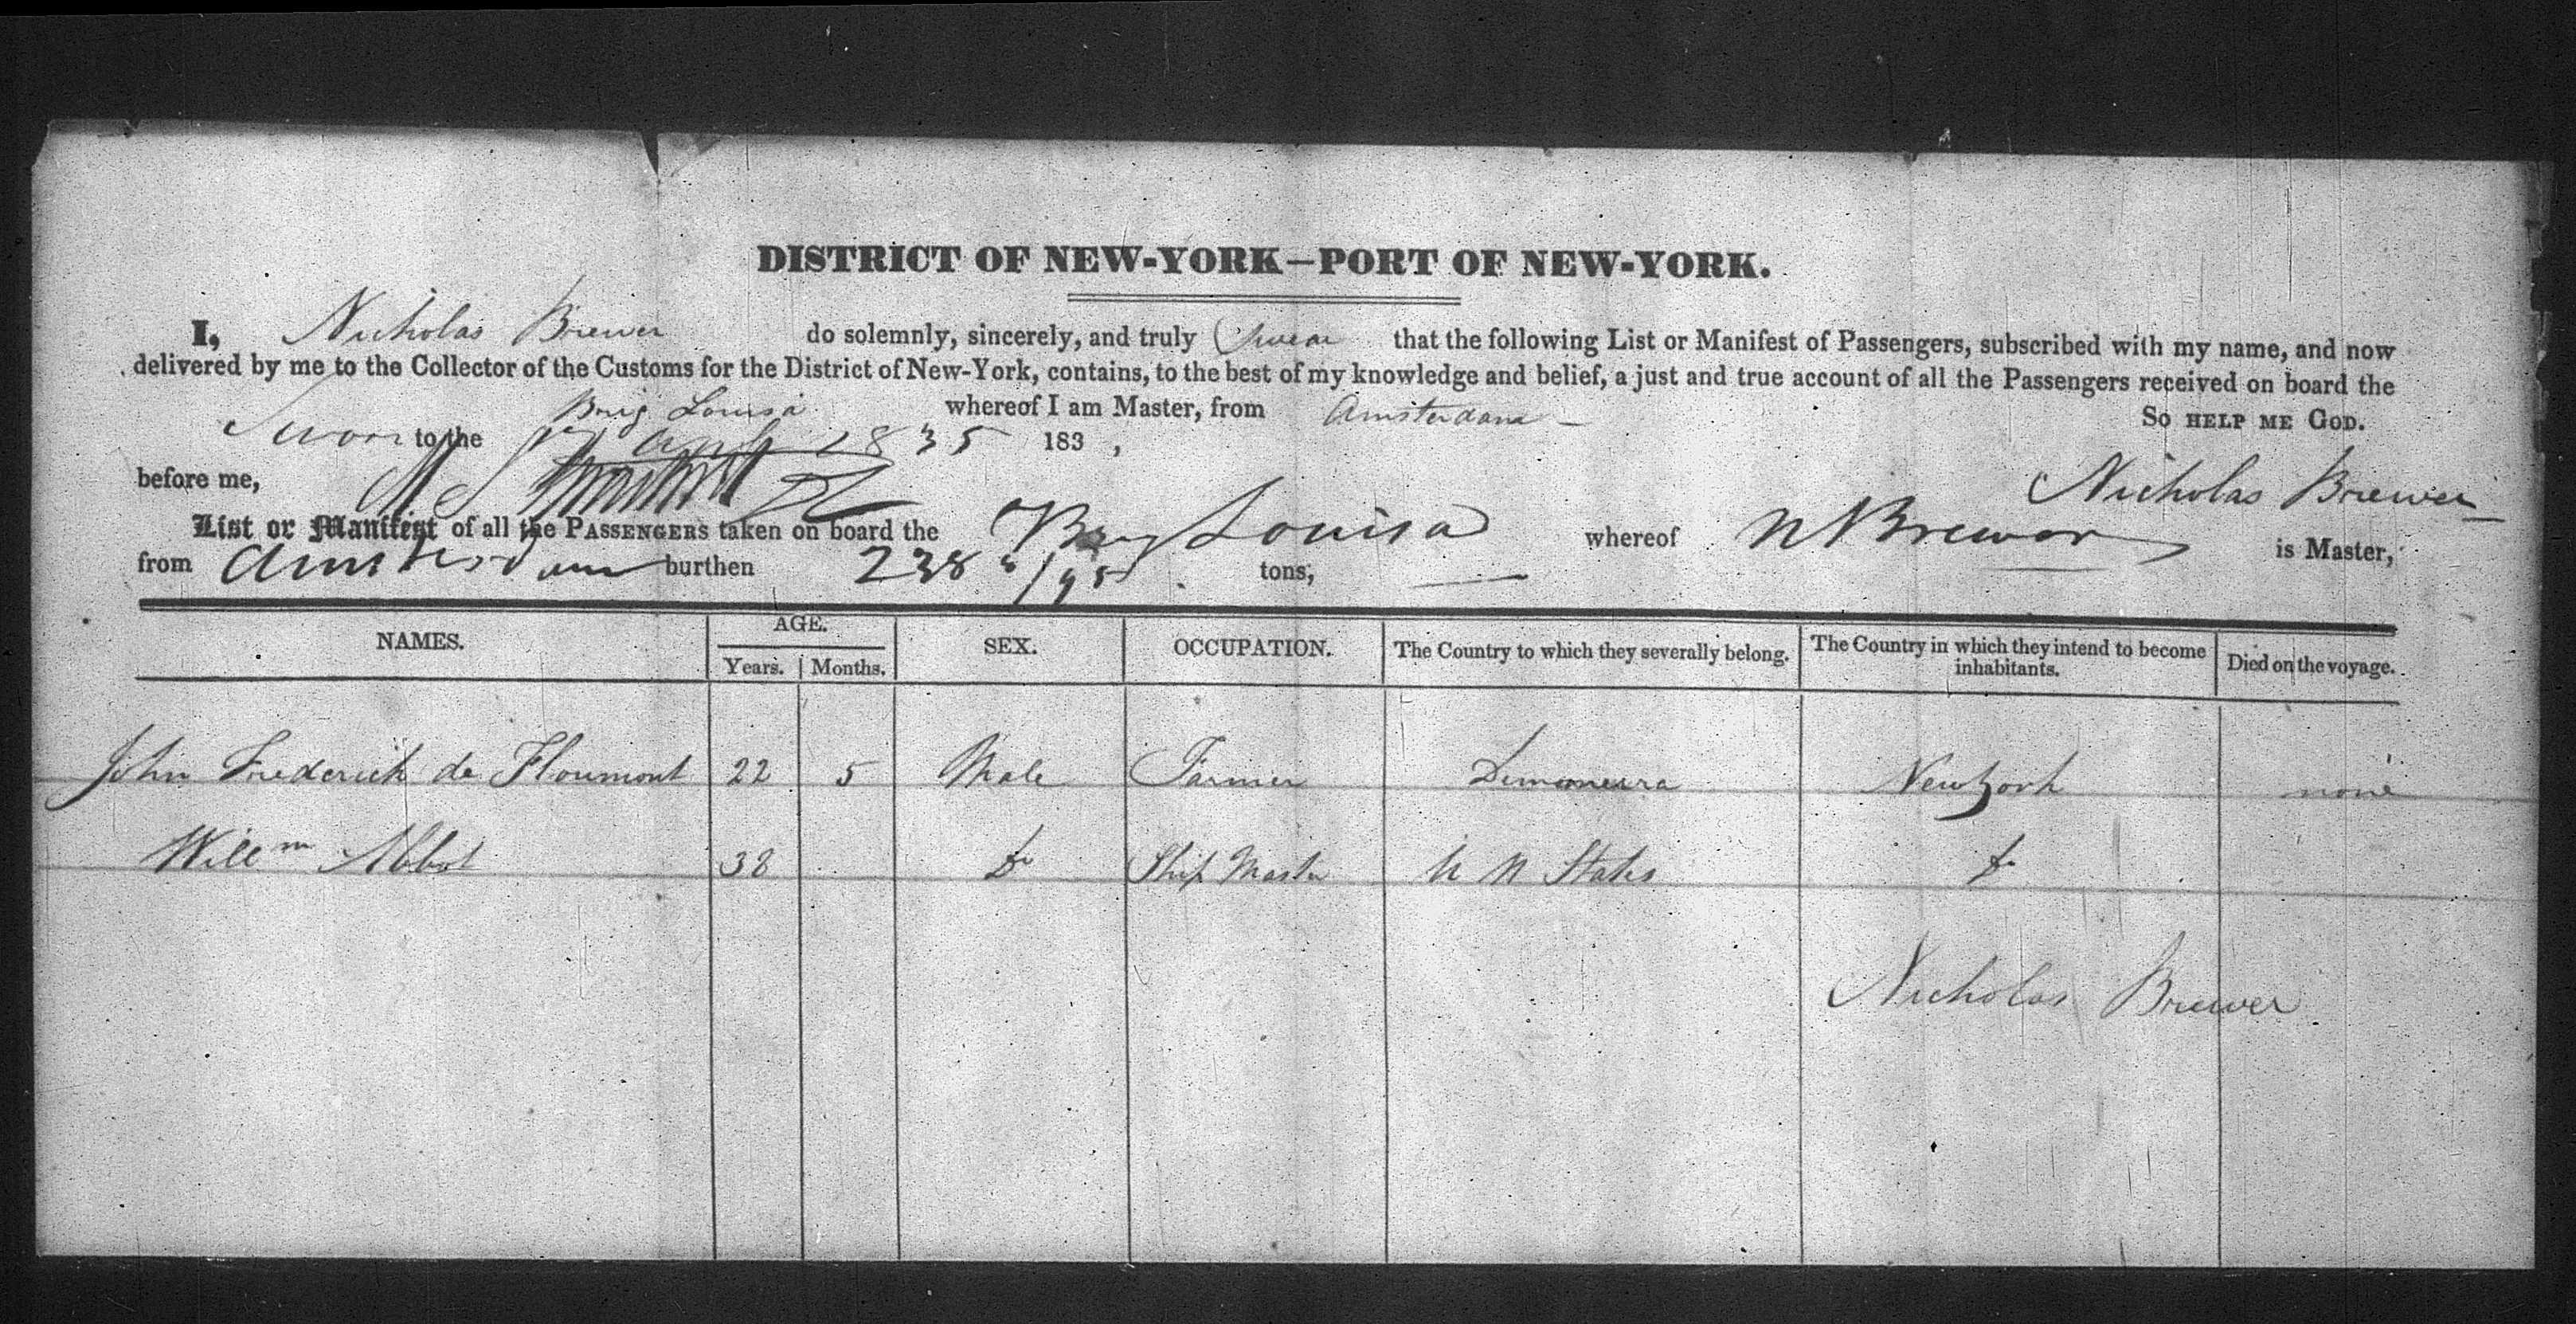 DISTRICT OF NEW-YORK—PORT OF NEW-YORK.
I, Nicholas Brewer do solemnly, sincerely, and truly Swear that the following List or Manifest of Passengers, subscribed with my name, and now
delivered by me to the Collector of the Customs for the District of New-York, contains, to the best of my knowledge and belief, a just and true account of all the Passengers received on board the
Brig Louisa whereof I am Master, from Amsterdam — SO HELP ME GOD.
Sworn to the 1835 183 ,
before me, Nicholas Brewer
List or Manifest of all the PASSENGERS taken on board the Brig Louisa whereof N Brewer is Master,
from Amsterdam burthen 238 /95 tons,
NAMES. AGE. SEX. OCCUPATION. The Country to which they severally belong. The Country in which they intend to become inhabitants. Died on the voyage.
Years. Months.
John Frederick de Floumont 22 5 Male Farmer New York none
Willm Abbot 38 Do Ship Master U N States Do
Nicholas Brewer